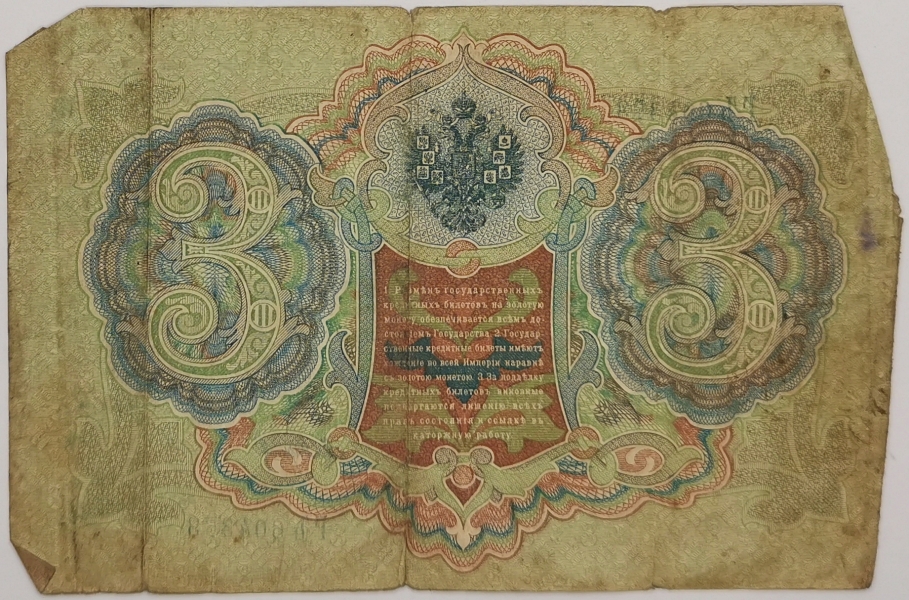 3 3
1. Размѣнъ государственныхъ
кредитныхъ билетовъ на золотую
монету обезпечивается всѣмъ до-
стояніемъ Государства. 2. Государ-
ственные кредитные билеты имѣютъ
хожденіе во всей Имперіи наравнѣ
съ золотою монетою. 3. За поддѣлку
кредитныхъ билетовъ виновные
подвергаются лишенію всѣхъ
правъ состоянія и ссылкѣ въ
каторжную работу